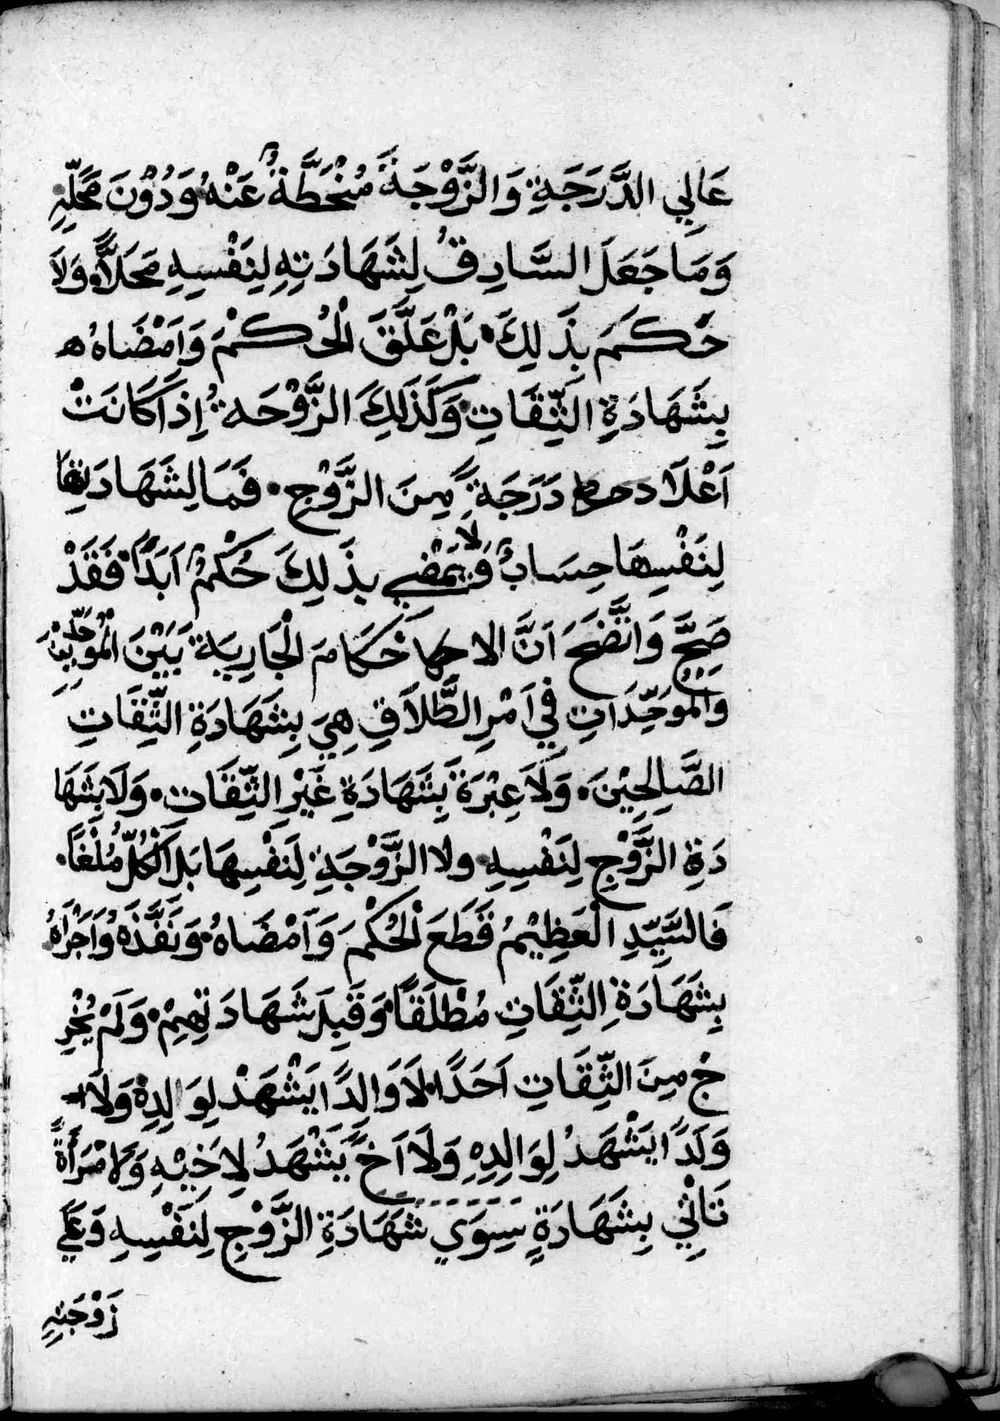 عَالِي الدَّرَجَةِ وَالزَّوْجَةَ مُنْحَطَّةُ عَنْهُ وَدُوْنَ مَحَلِّهِ
وَمَا جَعَلَ السَّادِقُ لِشَهَادَتِهِ لِنَفْسِهِ مَحَلاًّ وَلاَ
حَكَمَ بِذَلِكَ بَلْ عَلَّقَ الْحُكْمَ وَاَمْضَاهُ
بِشَهَادَةِ الثِّقَاتِ وَكَذَلِكَ الزَّوْجَةُ اِذَا كَانَتْ
اَعْلَا دَرَجَةً مِنَ الزَّوْجِ فَمَا لِشَهَادَتِهَا
لِنَفْسِهَا حِسَابٌ وَلَا يَمْضِي بِذَلِكَ حُكْمٌ اَبَدًا فَقَدْ
صَحَّ وَاتَّضَحَ اَنَّ الاحكَامَ الْجَارِيَةَ بَيْنَ الْمُوَحِّدِيْنَ
وَالْمُوَحِّدَاتِ فِي اَمْرِ الطَّلَاقِ هِيَ بِشَهَادَةِ الثِّقَاتِ
الصَّالِحِيْنَ وَلَا عِبْرَةَ بِشَهَادَةِ غَيْرِ الثِّقَاتِ وَلَا بِشَهَا
دَةِ الزَّوْجِ لِنَفْسِهِ ولا الزَّوْجَةِ لِنَفْسِهَا بَلِ الْكُلُّ مُلْغَاً
فَالسَّيِّدِ الْعَظِيْمُ قَطَعَ الْحُكْمَ وَاَمْضَاهُ وَنَفَّذَهُ وَاَجْرَاهُ
بِشَهَادَةِ الثِّقَاتِ مُطْلَقًا وَقَبِلَ شَهَادَتِهِمْ وَلَمْ يُخْرِ
جْ مِنَ الثِّقَاتِ اَحَدًا لَا وَالِدًا يَشْهَدْ لِوَالِدِهِ وَلَا
وَلَدًا يَشْهَدُ لِوَالِدِهِ وَلَا اَخً يَشْهَدُ لِاَخِيْهِ وَلَامْرَأَةً
تَاْتِي بِشَهَادَةٍ سِوَي شَهَادَةِ الزَّوْجِ لِنَفْسِهِ وَعَلَي
زَوْجَتِهِ